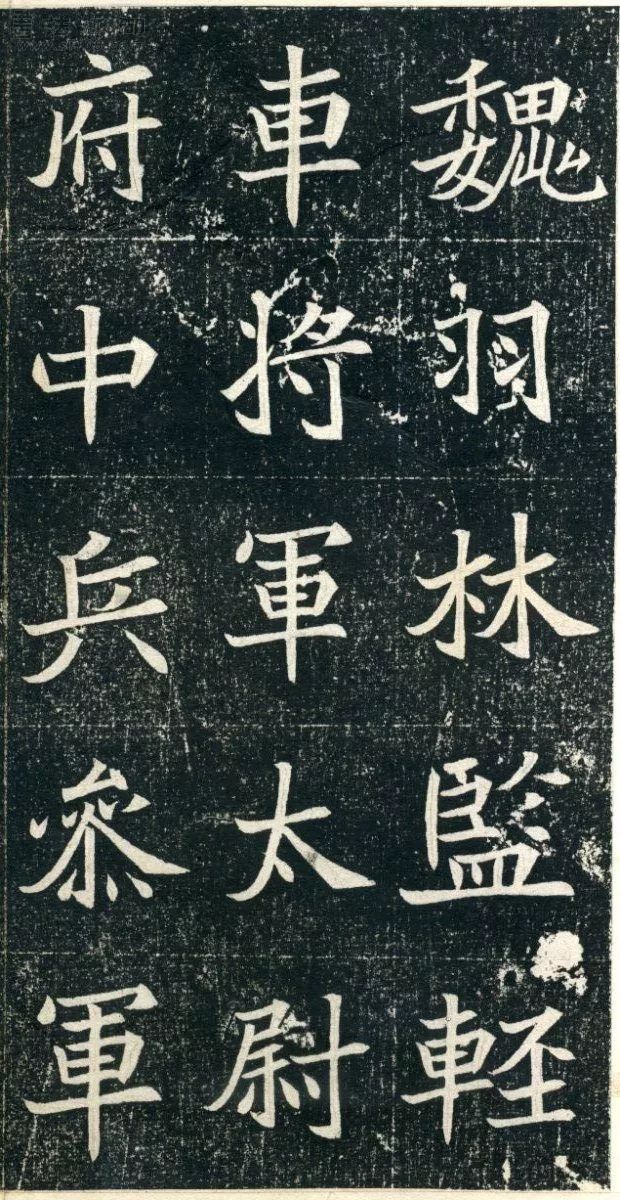 魏羽林監輕
車將軍太尉
府中兵參軍